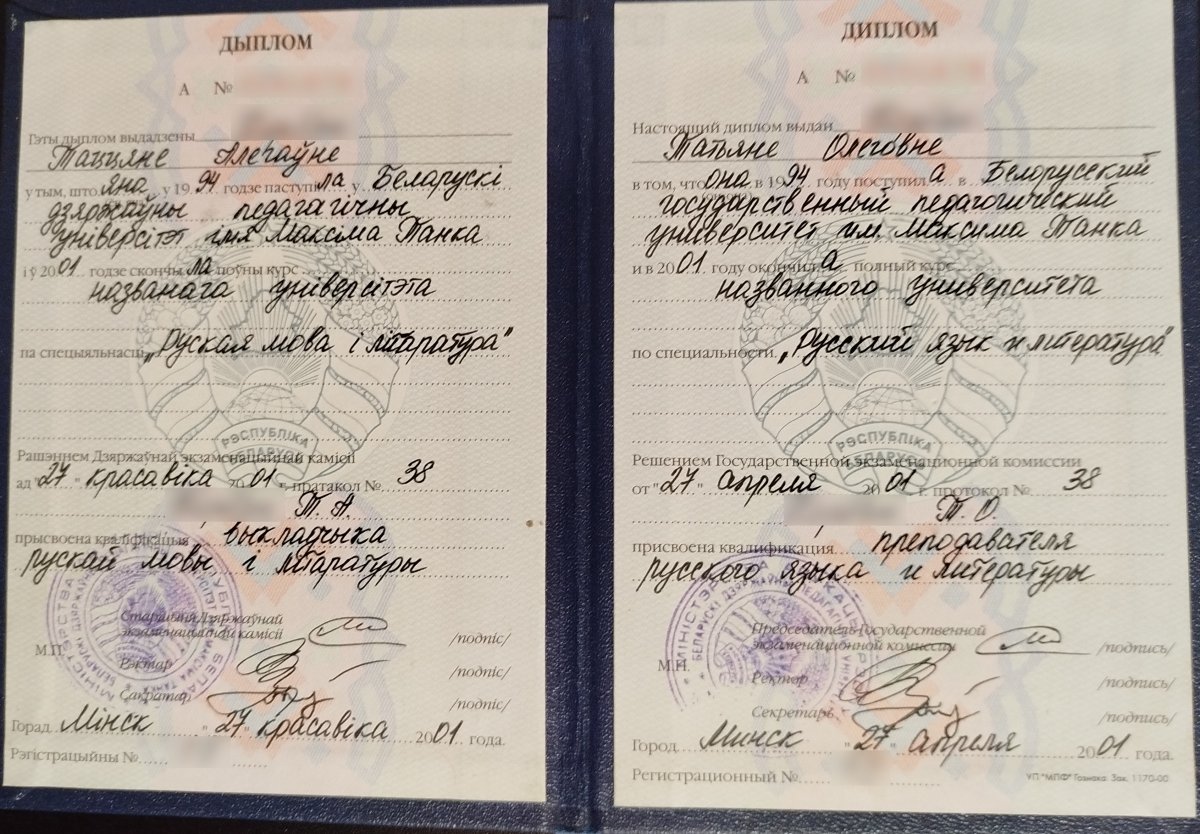 ДЫПЛОМ
А №
Гэты дыплом выдадзены
Таццяне Алегаўне
у тым, што яна у 1994 годзе паступіла у Беларускі
дзяржаўны педагагічны
універсітэт імя Максіма Танка
і ў 2001 годзе скончыла поўны курс
названага універсітэта
па спецыяльнасці „Руская мова і літаратура"
РЭСПУБЛІКА
БЕЛАРУСЬ
Рашэннем Дзяржаўнай экзаменацыйнай камісіі
ад "27" красавіка 2001 г. пратакол № 38
Т. А.
прысвоена кваліфікацыя выкладчыка
рускай мовы і літаратуры
Старшыня Дзяржаўнай
экзаменацыйнай камісіі /подпіс/
М.П.
Рэктар /подпіс/
Сакратар /подпіс/
Горад Мінск "27" красавіка 2001 года.
Рэгістрацыйны №
ДИПЛОМ
А №
Настоящий диплом выдан
Татьяне Олеговне
в том, что она в 1994 году поступила в Белорусский
государственный педагогический
университет им. Максима Танка
и в 2001 году окончила полный курс
названного университета
по специальности „Русский язык и литература"
РЭСПУБЛІКА
БЕЛАРУСЬ
Решением Государственной экзаменационной комиссии
от "27" апреля 2001 г. протокол № 38
Т. О.
присвоена квалификация преподавателя
русского языка и литературы
Председатель Государственной
экзаменационной комиссии /подпись/
М.П.
Ректор /подпись/
Секретарь /подпись/
Город Минск "27" апреля 2001 года.
Регистрационный №
УП "МПФ" Гознака. Зак. 1170-00